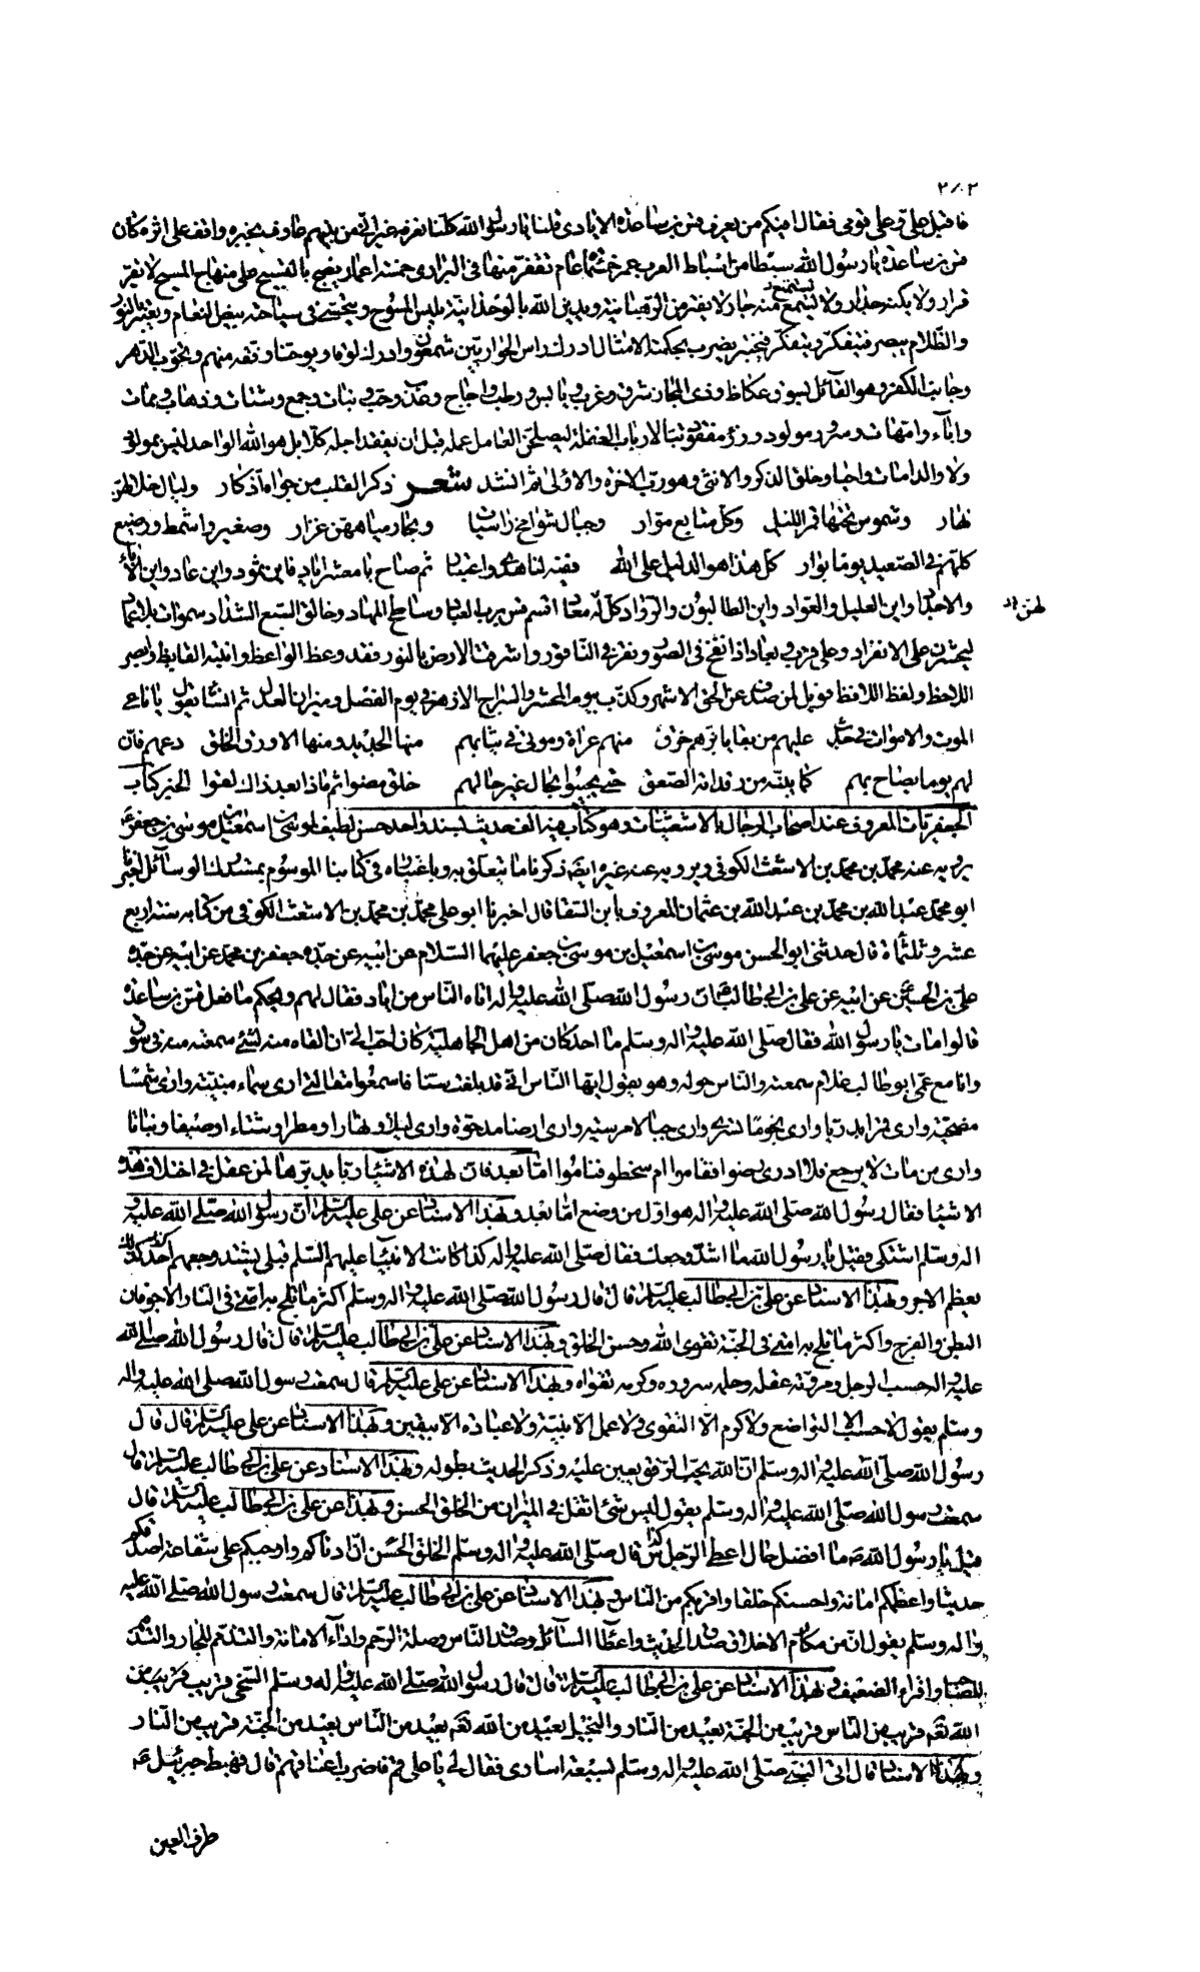 ٢٠٢
فاقبل على وعلى قومى فقال افيكم من يعرف قس بن ساعدة الايادى قلنا يا رسول الله كلنا نعرفه غير انى من بينهم عارف بخبره واقف على اثره كان
قس بن ساعدة يا رسول الله سبطا من اسباط العرب عمر خمسمأة عام تقفر منها فى البرارى خمسة اعمار يضج بالتسبيح على منهاج المسيح لا يقره
قرار ولا يكنه جدار ولا يستمتع منه جار لا يفتر من الرهبانية ويدين الله بالوحدانية يلبس المسوح ويتحسى فى سياحته بيض النعام ويعتبر بالنور
والظلام يبصر فيتفكر ويتفكر فيختبر يضرب بحكمته الامثال ادرك راس الحواريين شمعون وادرك لوقا ويوحنا وفقه منهم وتحوب الدهر
وجانب الكفر وهو القائل بسوق عكاظ وذى المجاز شرق وغرب ويابس ورطب واجاج وعذب وحب ونبات وجمع وشتات وذهاب وممات
واباء وامهات وسرور مولود ورزء مفقود تبا لارباب الغفلة ليصلحن العامل عمله قبل ان يفقد اجله كلا بل هو الله الواحد ليس بمولود
ولا والد امات واحيا وخلق الذكر والانثى وهو رب الاخرة والاولى ثم انشد شعر ذكر القلب من جواه ادكار وليال خلالهن
نهار وشموس تحتها قمر الليل وكل متابع موار وجبال شوامخ راسيات وبحار مياههن غزار وصغير واشمط ورضيع
كلهم فى الصعيد يوما بوار كل هذا هو الدليل على الله ففيه لنا هدى واعتبار ثم صاح يا معشر اياد فاين ثمود واين عاد واين الاباء
والاجداد واين العليل والعواد واين الطالبون والرواد كل له معاد اقسم قس برب العباد وساطح المهاد وخالق السبع الشداد سموات بلا عماد
ليحشرن على الانفراد وعلى قرب وبعاد اذا نفخ فى الصور ونقر فى الناقور واشرقت الارض بالنور فقد وعظ الواعظ وانتبه القايظ وابصر
اللاحظ ولفظ اللافظ فويل لمن صدف عن الحق الاشهر وكذب بيوم المحشر والسراج الازهر فى يوم الفصل وميزان العدل ثم انشأ يقول يا ناعى
الموت والاموات فى جدث عليهم من بقايا بزهم خرق منهم عراة وموتى فى ثيابهم منها الجديد ومنها الاورق الخلق دعهم فان
لهم يوما يصاح بهم كما ينبه من رقداته الصعق حتى يجيئوا بحال غير حالهم خلق مضوا ثم ماذا بعد ذاك لقوا الخبر كتاب
الجعفريات المعروف عند اصحاب الرجال بالاشعثيات وهو كتاب فيه الف حديث بسند واحد حسن لطيف لموسى بن اسمعيل بن موسى بن جعفر ع
يرويه عنه محمد بن محمد بن الاشعث الكوفى ويرويه عنه غيره ايضا ذكرنا ما يتعلق به وباعتباره فى كتابنا الموسوم بمستدرك الوسائل اخبرنا
ابو محمد عبد الله بن محمد بن عبد الله بن عثمان المعروف بابن السقا قال اخبرنا ابو على محمد بن محمد بن الاشعث الكوفى من كتابه سنة اربع
عشر وثلثمأة قال حدثنى ابو الحسن موسى بن اسمعيل بن موسى بن جعفر عليهما السلام عن ابيه عن جده جعفر بن محمد عن ابيه عن جده
على بن الحسين عن ابيه عن على بن ابى طالب ع ان رسول الله صلى الله عليه واله اتاه الناس من اياد فقال لهم ويحكم ما فعل قس بن ساعدة
قالوا مات يا رسول الله فقال صلى الله عليه واله وسلم ما احد كان من اهل الجاهلية كان احب الى ان القاه منه لشئ سمعته منه فى سوق
وانا مع عمى ابو طالب غلام سمعته والناس حوله وهو يقول ايها الناس انى قد بلغت سنا فاسمعوا مقالتى ارى سماء مبنية وارى شمسا
مضحية وارى قمرا بدريا وارى نجوما تسرى وارى جبالا مرسية وارى ارضا مدحوة وارى ليلا ونهارا ومطرا وشتاء وصيفا ونباتا
وارى من مات لا يرجع فلا ادرى رضوا فقاموا ام سخطوا فناموا اما بعد فان لهذه الاشياء ربا يدبرها لمن عقل فى اختلاف هذه
الاشياء فقال رسول الله صلى الله عليه واله هو اول من وضع اما بعد وبهذا الاسناد عن على عليه السلام ان رسول الله صلى الله عليه و
اله وسلم اشتكى فقيل يا رسول الله ما اشد وجعك فقال صلى الله عليه واله كذا كانت الانبياء عليهم السلم قبلى يشتد وجعهم كذلك
يعظم الاجر وبهذا الاسناد عن على بن ابى طالب عليه السلم قال قال رسول الله صلى الله عليه واله وسلم اكثر ما تلج به امتى فى النار الاجوفان
البطن والفرج واكثر ما تلج به امتى فى الجنة تقوى الله وحسن الخلق وبهذا الاسناد عن على بن ابى طالب عليه السلم قال قال رسول الله صلى الله
عليه واله حسب الرجل ومروته عقله وحلمه سروده وكرمه تقواه وبهذا الاسناد عن على عليه السلم قال سمعت رسول الله صلى الله عليه واله
وسلم يقول لا حسب الا التواضع ولا كرم الا التقوى ولا عمل الا بنية ولا عبادة الا بيقين وبهذا الاسناد عن على عليه السلم قال قال
رسول الله صلى الله عليه واله وسلم ان الله يحب الرفق ويعين عليه وذكر الحديث بطوله وبهذا الاسناد عن على بن ابى طالب عليه السلم قال
سمعت رسول الله صلى الله عليه واله وسلم يقول ليس شئ اثقل فى الميزان من الخلق الحسن وبهذا عن على بن ابى طالب عليه السلم قال
قيل يا رسول الله ص ما افضل حال اعطى الرجل قال صلى الله عليه واله وسلم الخلق الحسن ان ادناكم واوجبكم على شفاعة اصدقكم
حديثا واعظمكم امانة واحسنكم خلقا واقربكم من الناس وبهذا الاسناد عن على بن ابى طالب عليه السلم قال سمعت رسول الله صلى الله عليه
واله وسلم يقول ان من مكارم الاخلاق صدق الحديث واعطاء السائل وصدق الناس وصلة الرحم واداء الامانة والتذمم للجار والتذمم
للصاحب واقراء الضيف وبهذا الاسناد عن على بن ابى طالب عليه السلم قال قال رسول الله صلى الله عليه واله وسلم السخى قريب قريب من
الله تعم قريب من الناس قريب من الجنة بعيد من النار والبخيل بعيد من الله تعم بعيد من الناس بعيد من الجنة قريب من النار
وبهذا الاسناد قال اتى النبى صلى الله عليه واله وسلم بسبعة اسارى فقال لى يا على قم فاضرب اعناقهم قال فهبط جبرئيل ع
طرف العين